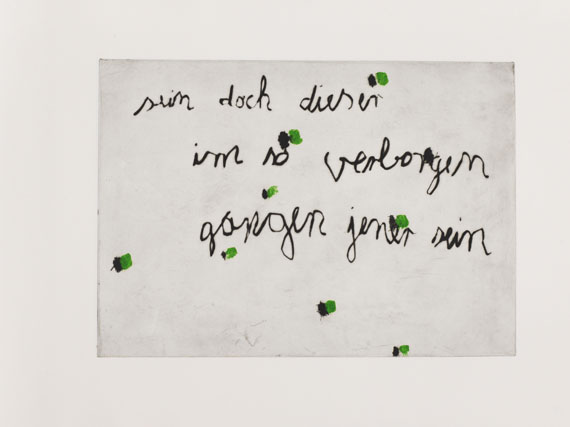 sein doch dieser
im so verborgen
gangen jener sein